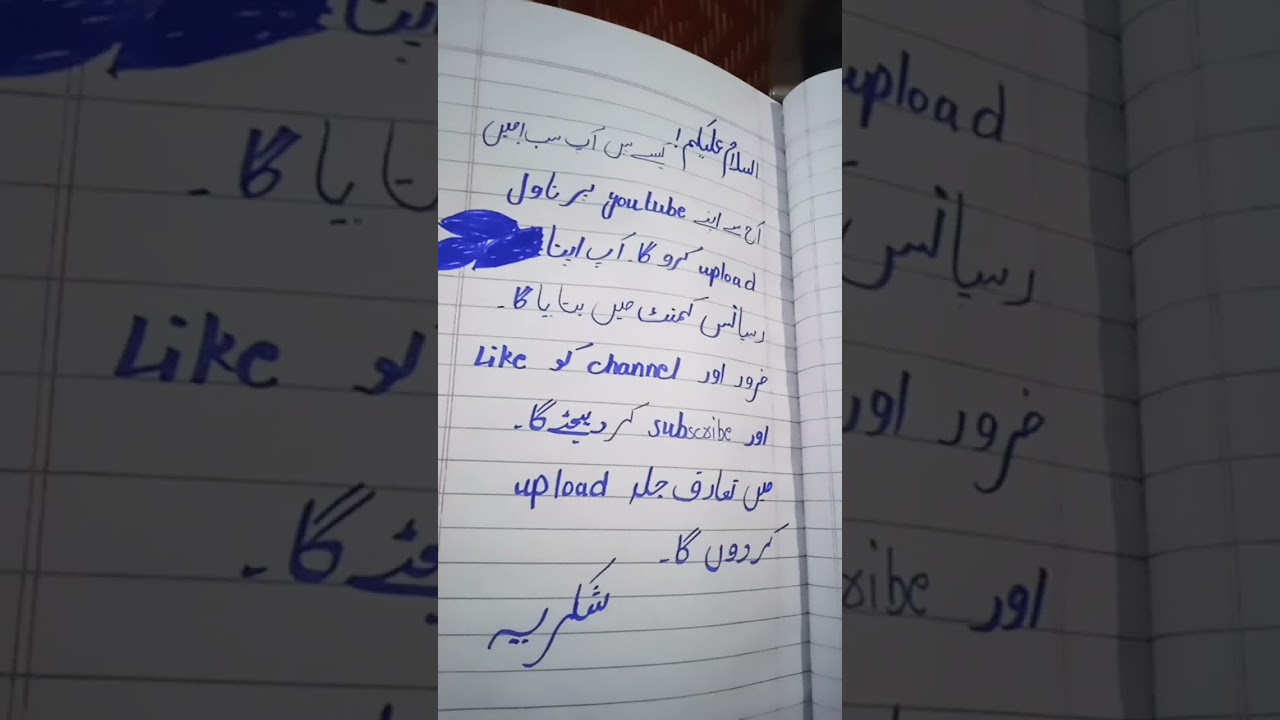 السلام علیکم! کیسے ہیں آپ سب! میں
آج سے اپنے youtube پر ناول
upload کرو گا۔ آپ اپنا
رسپانس کمنٹ میں بتایا گا۔
ضرور اور channel کو Like
اور subscribe کر دیجئے گا۔
میں تعارف جلد upload
کردوں گا۔
شکریہ